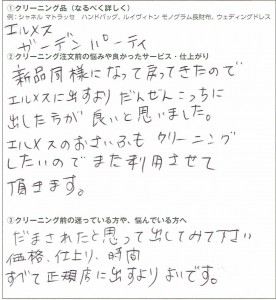 ①クリーニング品（なるべく詳しく）
例：シャネル マトラッセ　ハンドバッグ、ルイヴィトン モノグラム長財布、ウェディングドレス
エルメス
ガーデンパーティ
②クリーニング注文前の悩みや良かったサービス・仕上がり
新品同様になって戻ってきたので
エルメスに出すよりだんぜんこっちに
出した方が良いと思いました。
エルメスのおさいふも クリーニング
したいので また利用させて
頂きます。
③クリーニング前の迷っている方や、悩んでいる方へ
だまされたと思って出してみて下さい
価格、仕上り、時間
すべて正規店に出すより よいです。